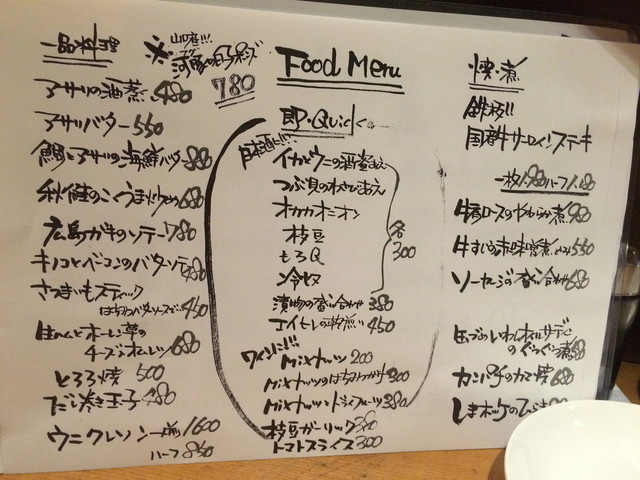 Food Menu
一品料理
※山口産!!!
フグ
河豚の白子ポン酢
780
アサリの酒蒸し 480
アサリバター 550
鯛とアサリの海鮮バター 880
秋鮭のこくうま炒め 680
広島ガキのソテー 780
キノコとベーコンのバターソテー
さつまいもスティック
はちみつバターソースで 450
生ハムとホーレン草の
チーズオムレツ 680
とろろ焼 500
だし巻き玉子 480
ウニクレソン 一人前 1600
ハーフ 850
即・Quick
日本酒に!!!
つぶ貝のわさびあえ
オカカオニオン
枝豆
もろQ
冷奴
各
300
漬物の盛り合わせ 380
エイヒレの軽炙り 450
ワインに!!
Mixナッツ 200
Mixナッツのはちみつがけ 300
Mixナッツ+ドライフルーツ 380
枝豆ガーリック 380
トマトスライス 300
焼・煮
鉄板!!
国産牛サーロインステーキ
一枚 1,980 ハーフ 1,180
牛肩ロースのやわらか煮 980
牛すじの赤味噌煮 550
ソーセージの盛り合わせ 680
缶づめいわしオイルサーディン
のぐつぐつ煮 580
カンパチのカマ焼 680
しまホッケの